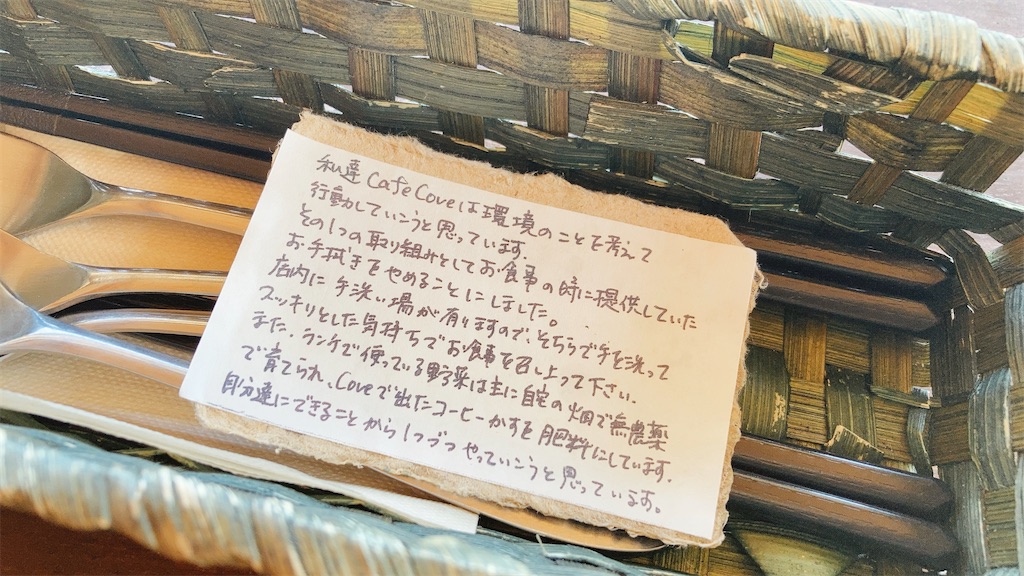 私達 CafeCoveは環境のことを考えて
行動していこうと思っています.
その1つの取り組みとしてお食事の時に提供していた
お手拭きをやめることにしました。
店内に手洗い場が有りますので、そちらで手を洗って
スッキリとした気持ちでお食事を召し上って下さい.
また、ランチで使っている野菜は主に自宅の畑で無農薬
で育てられ、Coveで出たコーヒーかすを肥料にしています.
自分達にできることから1つづつやっていこうと思っています。